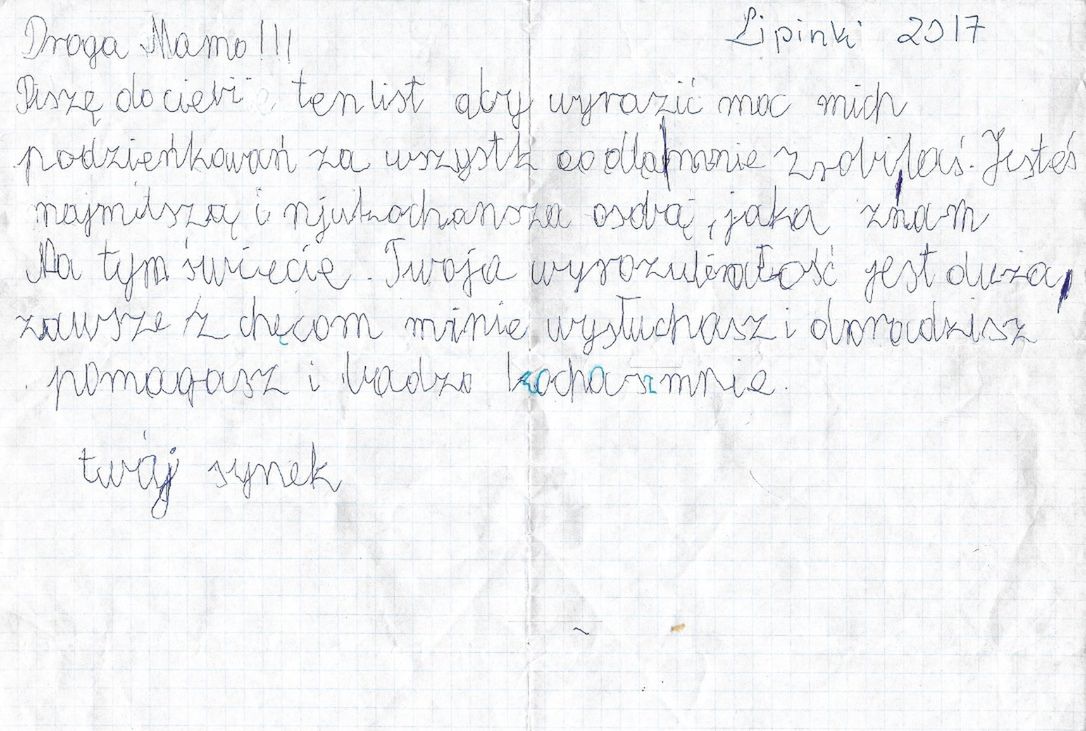 Lipinki 2017
Droga Mamo!!!
Piszę do ciebi ten list aby wyrazić moc mich
podzieńkowań za wszystk co dla mnie zrobiłaś. Jesteś
najmilszą i njukochansza osobą, jaką znam
Na tym świecie. Twoja wyrozumiałość jest duża,
zawsze z chęcom minie wysłuchasz i doradzisz
pomagasz i badzo kochasz mnie.
twój synek